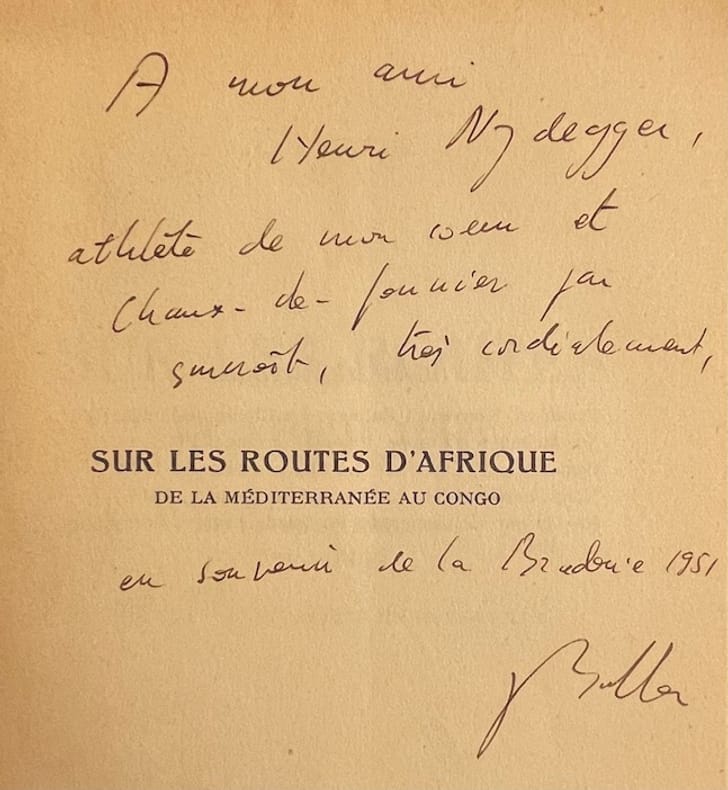 A mon ami
Henri Nydegger,
athlète de mon coeur et
Chaux-de-fonnier par
surcroît, très cordialement,
SUR LES ROUTES D'AFRIQUE
DE LA MÉDITERRANÉE AU CONGO
en souvenir de la 1951